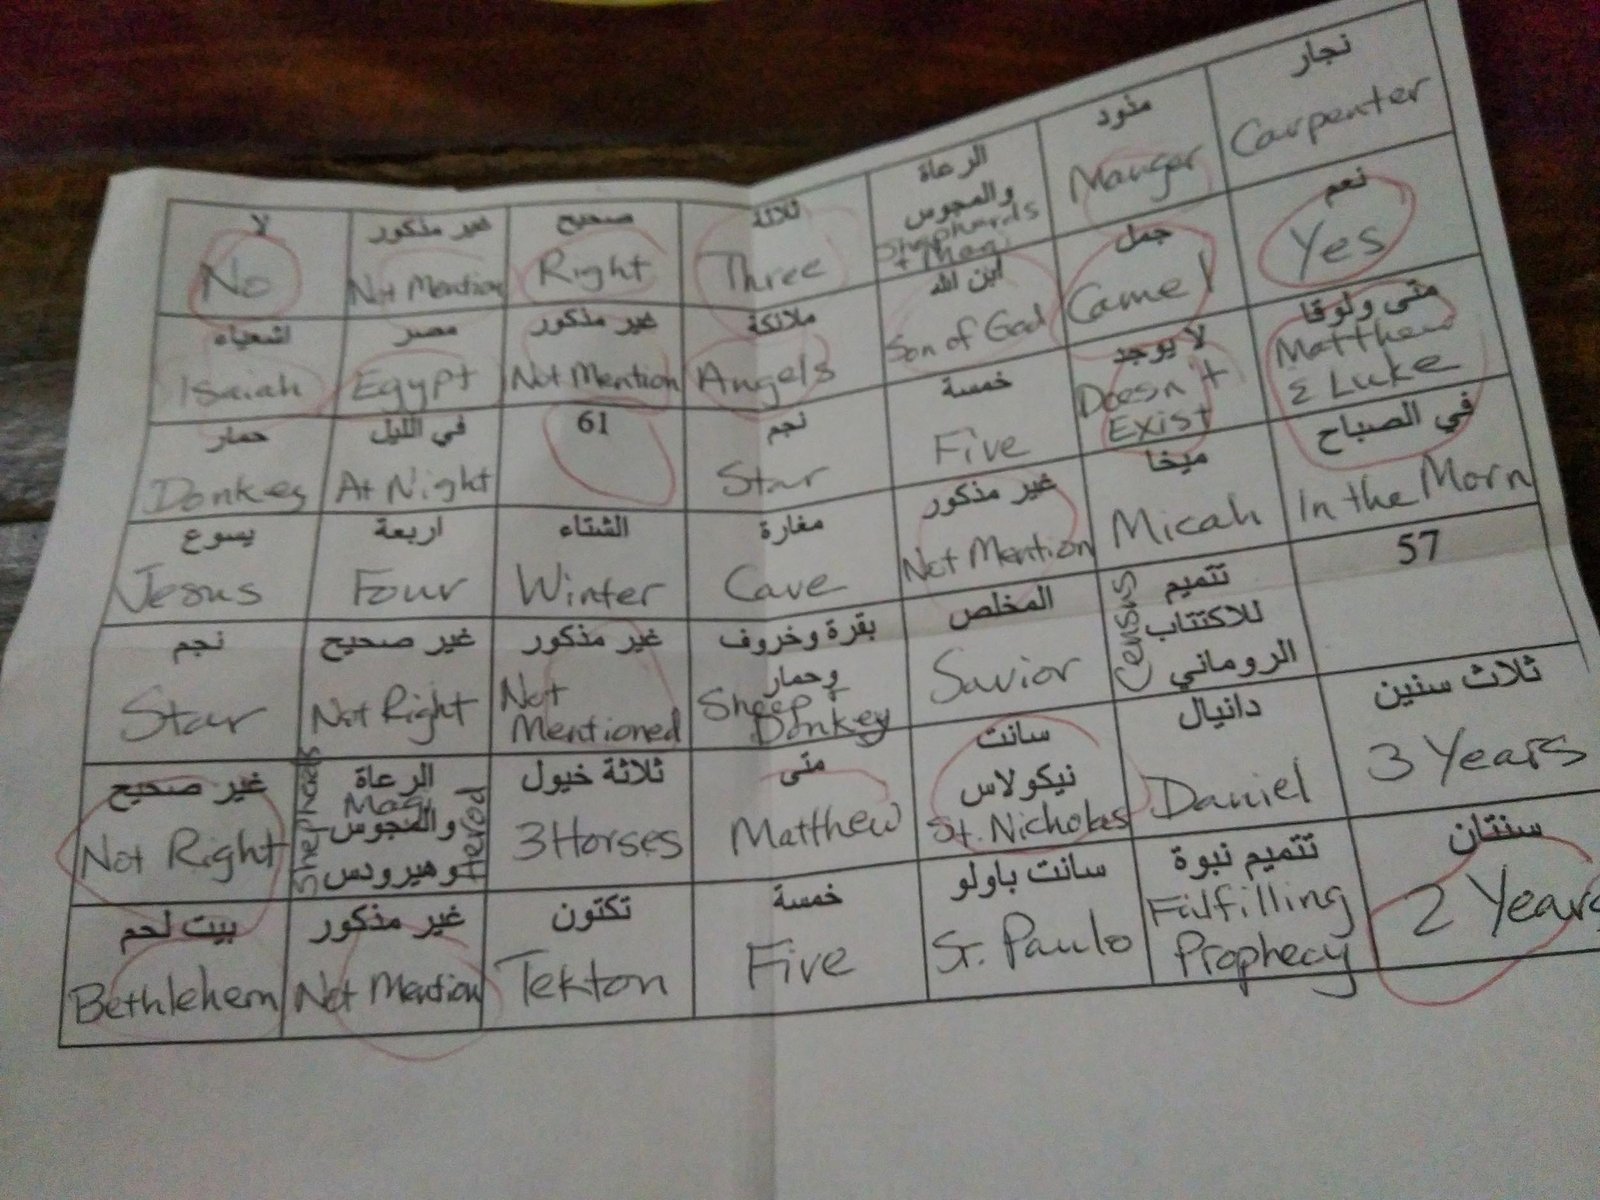 لا
No
غير مذكور
Not Mention
صحيح
Right
ثلاثة
Three
الرعاة
والمجوس
Shephards
+ Magi
مذود
Manger
نجار
Carpenter
اشعياء
Isaiah
مصر
Egypt
غير مذكور
Not Mention
ملائكة
Angels
ابن الله
Son of God
جمل
Camel
نعم
Yes
حمار
Donkey
في الليل
At Night
61
نجم
Star
خمسة
Five
لا يوجد
Doesn't
Exist
متى ولوقا
Matthew
& Luke
يسوع
Jesus
اربعة
Four
الشتاء
Winter
مغارة
Cave
غير مذكور
Not Mention
ميخا
Micah
في الصباح
In the Morn
نجم
Star
غير صحيح
Not Right
غير مذكور
Not
Mentioned
بقرة وخروف
وحمار
Sheep +
Donkey
المخلص
Savior
تتميم
للاكتتاب
الروماني
Census
57
غير صحيح
Not Right
الرعاة
والمجوس
وهيرودس
Shepherds
Magi
Herod
ثلاثة خيول
3 Horses
متى
Matthew
سانت
نيكولاس
St. Nicholas
دانيال
Daniel
ثلاث سنين
3 Years
بيت لحم
Bethlehem
غير مذكور
Not Mention
تكتون
Tekton
خمسة
Five
سانت باولو
St. Paulo
تتميم نبوة
Fulfilling
Prophecy
سنتان
2 Years